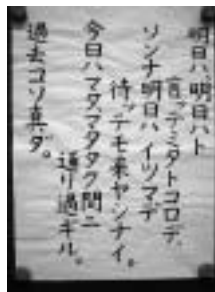 明日ハ、明日ハト
言ッテミタトコロデ、
ソンナ明日ハイツマデ
待ッテモ来ヤシナイ。
今日ハマタマタタク間ニ
通リ過ギル。
過去コソ真ダ。